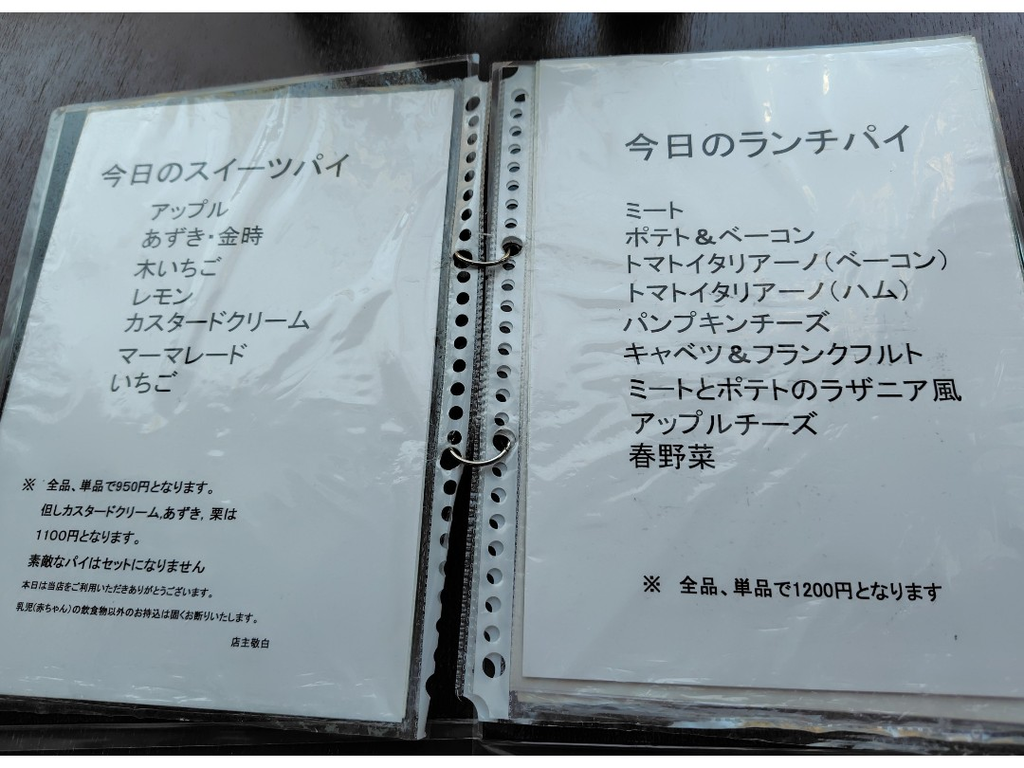 今日のスイーツパイ
アップル
あずき・金時
木いちご
レモン
カスタードクリーム
マーマレード
いちご
※ 全品、単品で950円となります。
但しカスタードクリーム,あずき, 栗は
1100円となります。
素敵なパイはセットになりません
本日は当店をご利用いただきありがとうございます。
乳児(赤ちゃん)の飲食物以外のお持込は固くお断りいたします。
店主敬白
今日のランチパイ
ミート
ポテト&ベーコン
トマトイタリアーノ(ベーコン)
トマトイタリアーノ(ハム)
パンプキンチーズ
キャベツ&フランクフルト
ミートとポテトのラザニア風
アップルチーズ
春野菜
※ 全品、単品で1200円となります